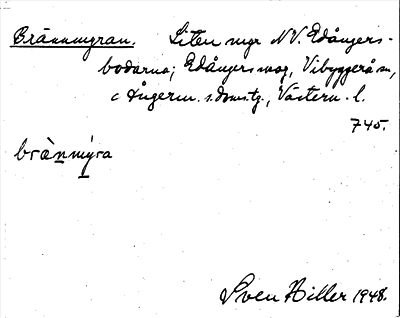 Brännmyran. Liten myr NV. Edångers-
bodarna; Edångers vag, Vibyggerå sn,
c Ångerm. s. doms.tg., Västern. l.
745.
brän̲mýra
Sven Hiller 1948.